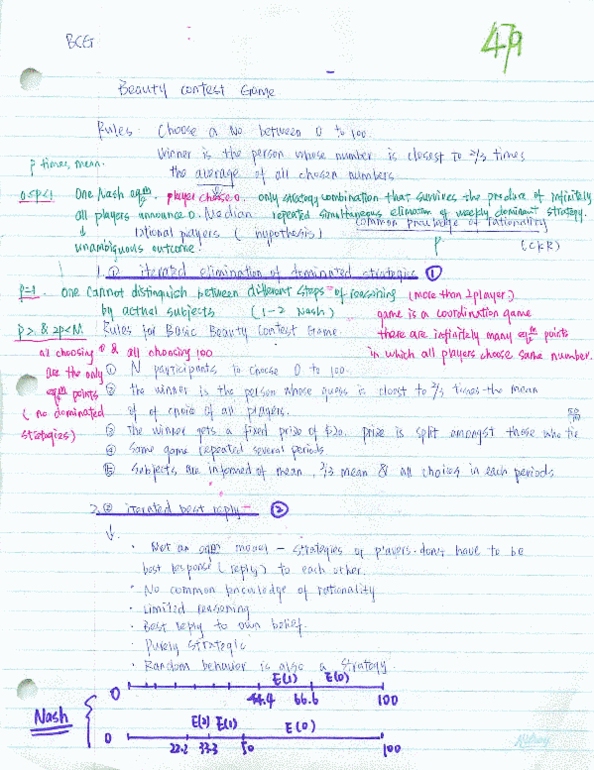 BCG
479
Beauty contest Game
Rules. Choose a No between 0 to 100.
Winner is the person whose number is closest to 2/3 times
the average of all chosen numbers
p times, mean.
0≤p<1 One Nash eqm. player choose 0. only strategy combination that survives the of infinitely
all players announce 0. Median repeated simultaneous of weakly dominant strategy.
↓ rational players (hypothesis) (common knowledge of rationality
unambiguous outcome. P (CKR)
1. ① iterated elimination of dominated strategies ①
p=1. one cannot distinguish between different steps of reasoning (more than 1 player)
by actual subjects (1-2 Nash) game is a coordination game
p>1 & 2p<N. Rules for Basic Beauty Contest Game. there are infinitely many eqm points
all choosing 0 & all choosing 100 in which all players choose same number.
are the only ① N participants to choose 0 to 100.
eqm points ② the winner is the person whose guess is closet to 2/3 times the mean
(no dominated of of choice of all players.
strategies) ③ The winner gets a fixed prize of $20. prize is split amongst those who tie
④ Same game repeated several periods
⑤ Subjects are informed of mean, 2/3 mean & all choices in each periods
2. ② iterated best reply - ②
↓
· Not an eqm model - strategies of players don't have to be
best response (reply) to each other.
· No common knowledge of rationality
· Limited reasoning
· Best reply to own belief.
· Purely strategic
· Random behavior is also a strategy.
E(1) E(0)
0 44.4 66.6 100
Nash
E(2) E(1) E(0)
0 22.2 33.3 50 100